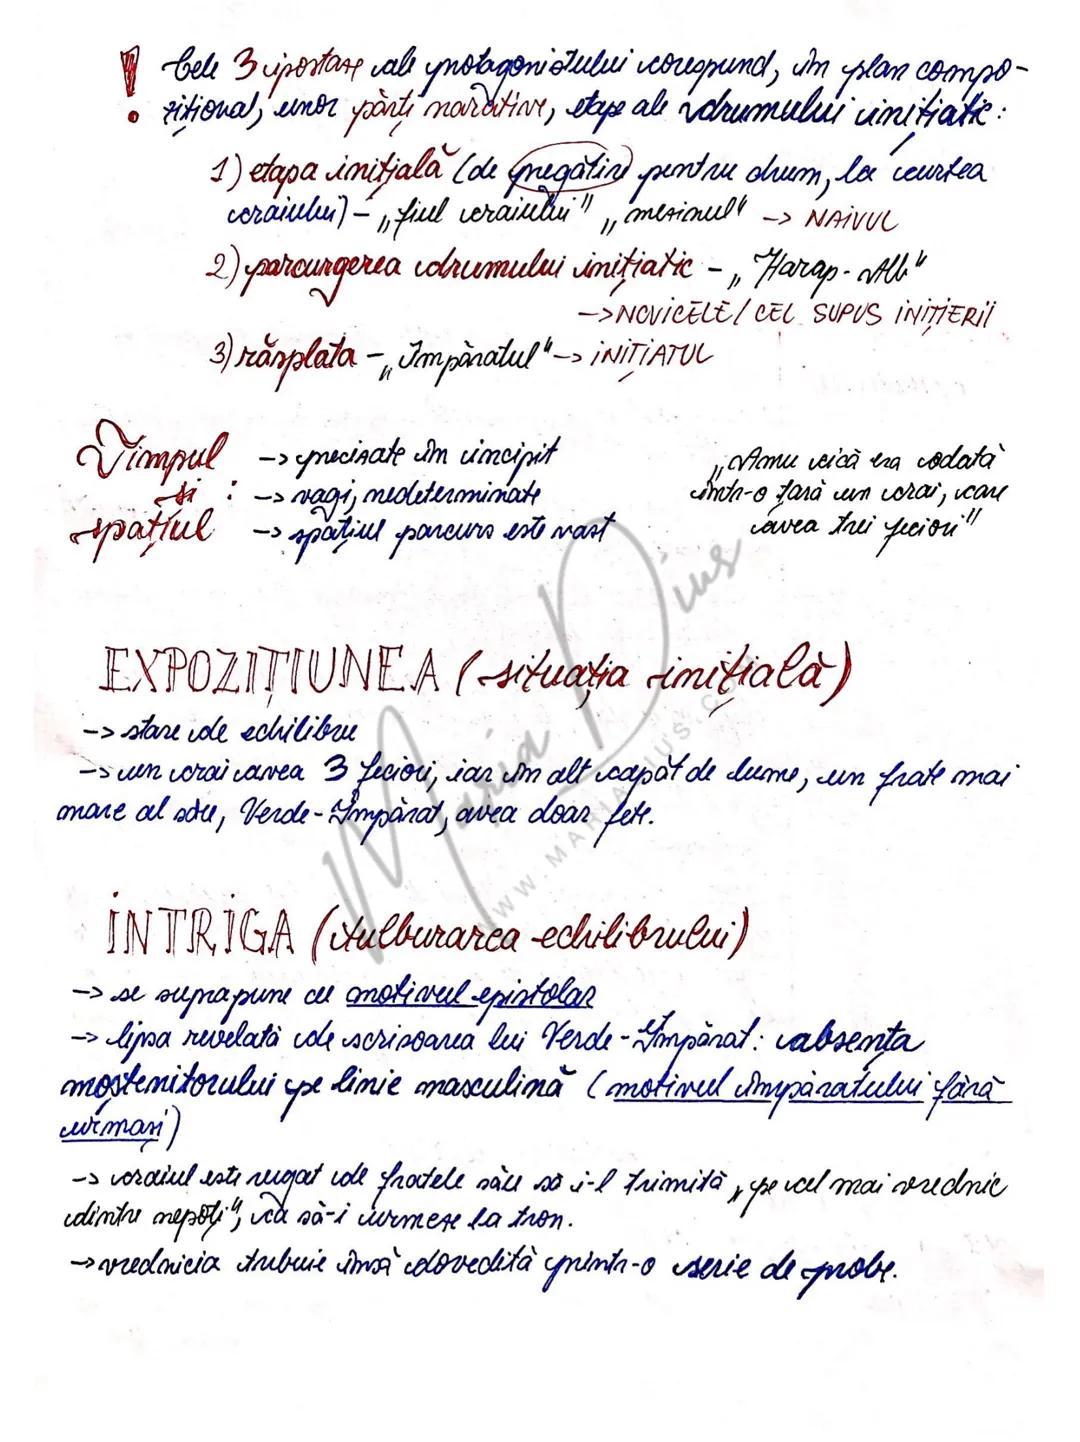 ! Cele 3 ipostaze ale protagonistului corespund, în plan compo-
zițional, unor părți narative, etape ale drumului inițiatic:
1) etapa inițială (de pregătire pentru drum, la curtea
craiului) – „fiul craiului" „mezinul" -> NAIVUL
2) parcurgerea drumului inițiatic – „Harap-Alb"
-> NOVICELE / CEL SUPUS INIȚIERII
3) răsplata – „Împăratul" -> INIȚIATUL
Timpul și spațiul :
-> precizate în incipit
-> vagi, nedeterminate
-> spațiul parcurs este vast
„Amu cică era odată
într-o țară un crai, care
avea trei feciori"
EXPOZIȚIUNEA (situația inițială)
-> stare de echilibru
-> un crai avea 3 feciori, iar în alt capăt de lume, un frate mai
mare al său, Verde-Împărat, avea doar fete.
INTRIGA (tulburarea echilibrului)
-> se suprapune cu motivul epistolar
-> lipsa revelată de scrisoarea lui Verde-Împărat: absența
moștenitorului pe linie masculină (motivul împăratului fără
urmași)
-> craiul este rugat de fratele său să i-l trimită „pe cel mai vrednic
dintre nepoți", ca să-i urmeze la tron.
-> vrednicia trebuie însă dovedită printr-o serie de probe.
Maria Dius
WWW.MARIADIUS.COM